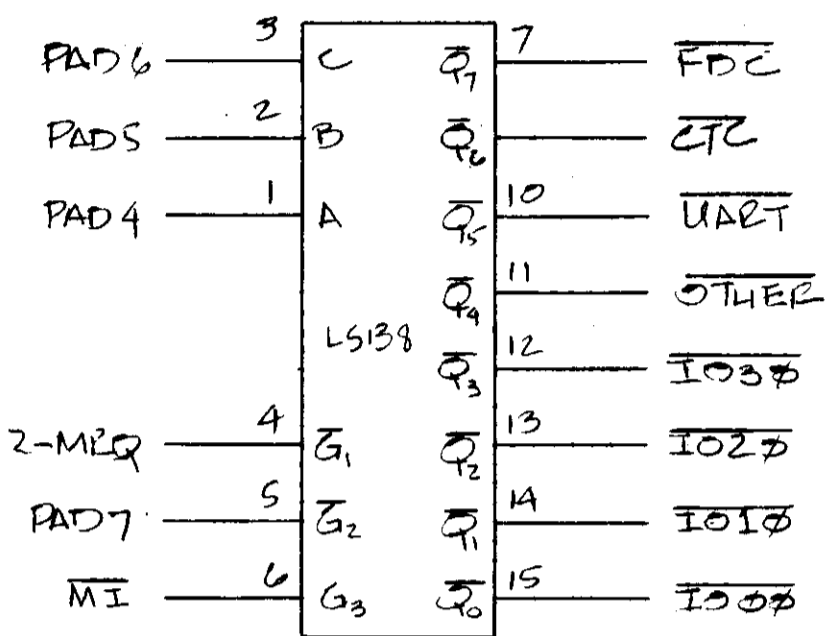 PAD6 3 C Q̅7 7 F̅D̅C̅
PAD5 2 B Q̅6 C̅T̅C̅
PAD4 1 A Q̅5 10 U̅A̅R̅T̅
Q̅4 11 O̅T̅H̅E̅R̅
LS138
Q̅3 12 I̅O̅3̅Ø̅
4 G̅1 Q̅2 13 I̅O̅2̅Ø̅
PAD7 5 G̅2 Q̅1 14 I̅O̅1̅Ø̅
M̅I̅ 6 G3 Q̅0 15 I̅O̅Ø̅Ø̅